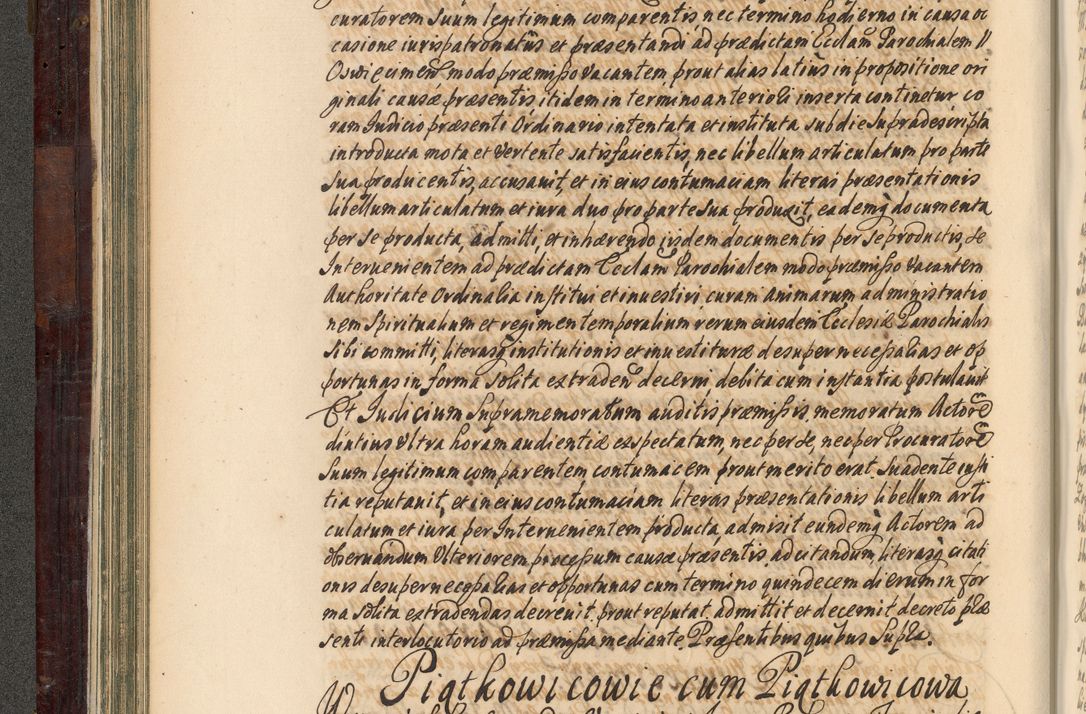 curatorem Suum legitimum comparentis, nec termino hodierno in causa oc
casione iurispatronatus et præsentandi ad prædictam Ecclam Parochialem
Oswiecimeñ modo præmisso vacantem prout alias latius in propositione ori
ginali causæ præsentis itidem in termino anteriori inserta continetur co
ram Judicio præsenti Ordinario intentata et instituta sub die supradescripta
introducta mota et vertente satisfacientis, nec libellum articulatum pro parte
sua producentis, accusavit, et in eius contumaciam literas præsentationis
libellum articulatum et iura duo pro parte sua produxit, eademq documenta
per se producta, admitti, et inhærendo iisdem documentis per se productis, se
Intervenientem ad prædictam Ecclam Parochialem modo præmisso vacantem
Authoritate Ordinaria institui et investiri curam animarum administratio
nem spiritualium et regimen temporalium rerum eiusdem Ecclesiæ Parochialis
sibi committi, literasq institutionis et investituræ desuper necessarias et op
portunas in forma solita extradeñ decerni debita cum instantia postulavit
Et Judicium supramemoratum auditis præmissis, memoratum Actorē
diutius ultra horam audientiæ exspectatum, nec per se, nec per Procuratorē
suum legitimum comparentem contumacem prout merito erat suadente iusti
tia reputavit, et in eius contumaciam literas præsentationis libellum arti
culatum et iura per Intervenientem producta, admisit eundemq Actorem ad
observandum Ulteriorem processum causæ præsentis, adcitandum, literasq citati
onis desuper necessarias et opportunas cum termino quindecem dierum in for
ma solita extradendas decrevit. prout reputat, admittit et decernit decreto præ
senti interlocutorio ad præmissa mediante. Præsentibus quibus supra.
Piątkowicowie cum Piątkowicowa